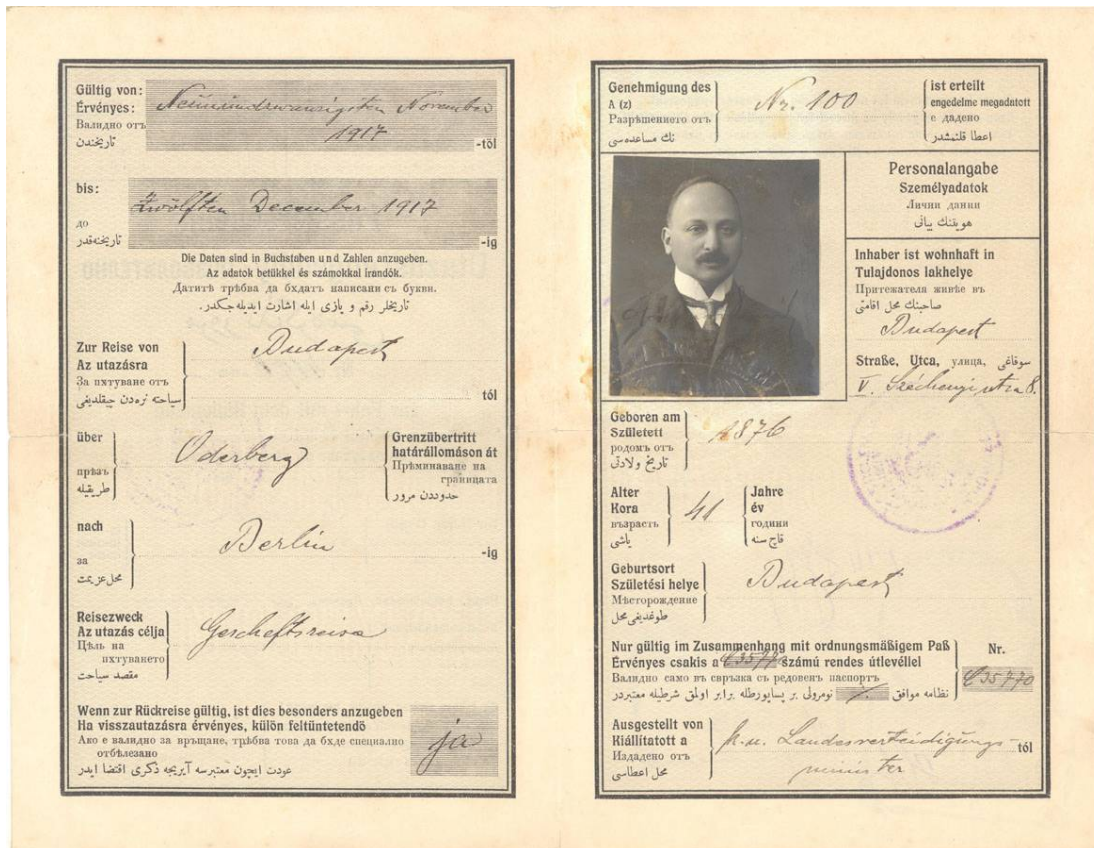 Gültig von:
Érvényes:
Валидно отъ
تاريخندن
Neunundzwanzigsten November
1917
-től
bis:
до
تاريخنه‌قدر
Zwölften December 1917
-ig
Die Daten sind in Buchstaben und Zahlen anzugeben.
Az adatok betűkkel és számokkal irandók.
Датитѣ трѣбва да бѫдатъ написани съ букви.
تاريخلر رقم و يازى ايله اشارت ايديله‌جكدر.
Zur Reise von
Az utazásra
За пѫтуване отъ
سياحته نره‌دن چيقلديغى
Budapest
tól
über
прѣзъ
طريقيله
Oderberg
Grenzübertritt
határállomáson át
Прѣминаване на
границата
حدوددن مرور
nach
за
محل عزيمت
Berlin
-ig
Reisezweck
Az utazás célja
Цѣль на
пѫтуването
مقصد سياحت
Gescheftsreise
Wenn zur Rückreise gültig, ist dies besonders anzugeben
Ha visszautazásra érvényes, külön feltüntetendő
Ако е валидно за връщане, трѣбва това да бѫде специално
отбѣлезано
عودت ايچون معتبرسه آيريجه ذكرى اقتضا ايدر
ja
Genehmigung des
A (z)
Разрѣшението отъ
نك مساعده‌سى
Nr. 100
ist erteilt
engedelme megadatott
е дадено
اعطا قلنمشدر
Personalangabe
Személyadatok
Лични данни
هويتنك بيانى
Inhaber ist wohnhaft in
Tulajdonos lakhelye
Притежателя живѣе въ
صاحبنك محل اقامتى
Budapest
Straße, Utca, улица, سوقاغى
V. Széchenyi utca 8.
Geboren am
Született
родомъ отъ
تاريخ ولادتى
1876
Alter
Kora
възрасть
ياشى
41
Jahre
év
години
قاچ سنه
Geburtsort
Születési helye
Мѣсторождение
طوغديغى محل
Budapest
Nur gültig im Zusammenhang mit ordnungsmäßigem Paß
Érvényes csakis a számú rendes útlevéllel
Валидно само въ свръзка съ редовенъ паспортъ
نظامه موافق نومرولى بر پساپورطله برابر اولمق شرطيله معتبردر
Nr.
35770
Ausgestellt von
Kiállítatott a
Издадено отъ
محل اعطاسى
k. u. Landesverteidigungs-
minister
tól